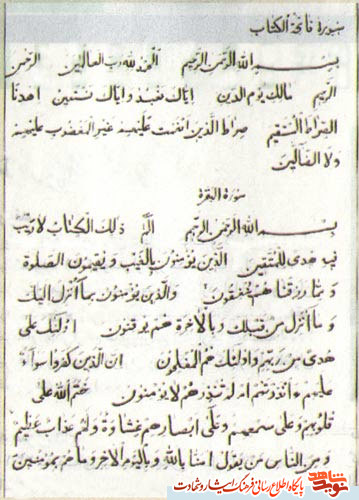 سورة فاتحة الکتاب
بسم الله الرحمن الرحیم الحمد لله رب العالمین الرحمن
الرحیم مالک یوم الدین ایاک نعبد و ایاک نستعین اهدنا
الصراط المستقیم صراط الذین انعمت علیهم غیر المغضوب علیهم
ولا الضالین
سورة البقرة
بسم الله الرحمن الرحیم الم ذلک الکتاب لا ریب
فیه هدی للمتقین الذین یؤمنون بالغیب و یقیمون الصلوة
و مما رزقناهم ینفقون والذین یؤمنون بما انزل الیک
و ما انزل من قبلک و بالآخرة هم یوقنون اولئک علی
هدی من ربهم و اولئک هم المفلحون ان الذین کفروا سوآء
علیهم ءانذرتهم ام لم تنذرهم لا یؤمنون ختم الله علی
قلوبهم و علی سمعهم و علی ابصارهم غشاوة و لهم عذاب عظیم
و من الناس من یقول امنا بالله و بالیوم الآخر و ما هم بمؤمنین
نوید شاهد پایگاه اطلاع رسانی فرهنگ ایثار و شهادت